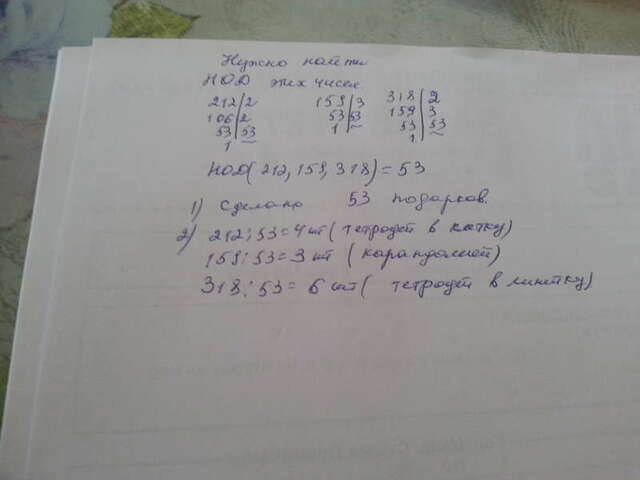 Нужно найти
НОД этих чисел
212|2 159|3 318|2
106|2 53|53 159|3
53|53 1| 53|53
1| 1|
НОД(212,159,318)=53
1) Сделано 53 подарков.
2) 212:53=4 шт (тетрадей в клетку)
159:53=3 шт (карандашей)
318:53=6 шт (тетрадей в линейку)